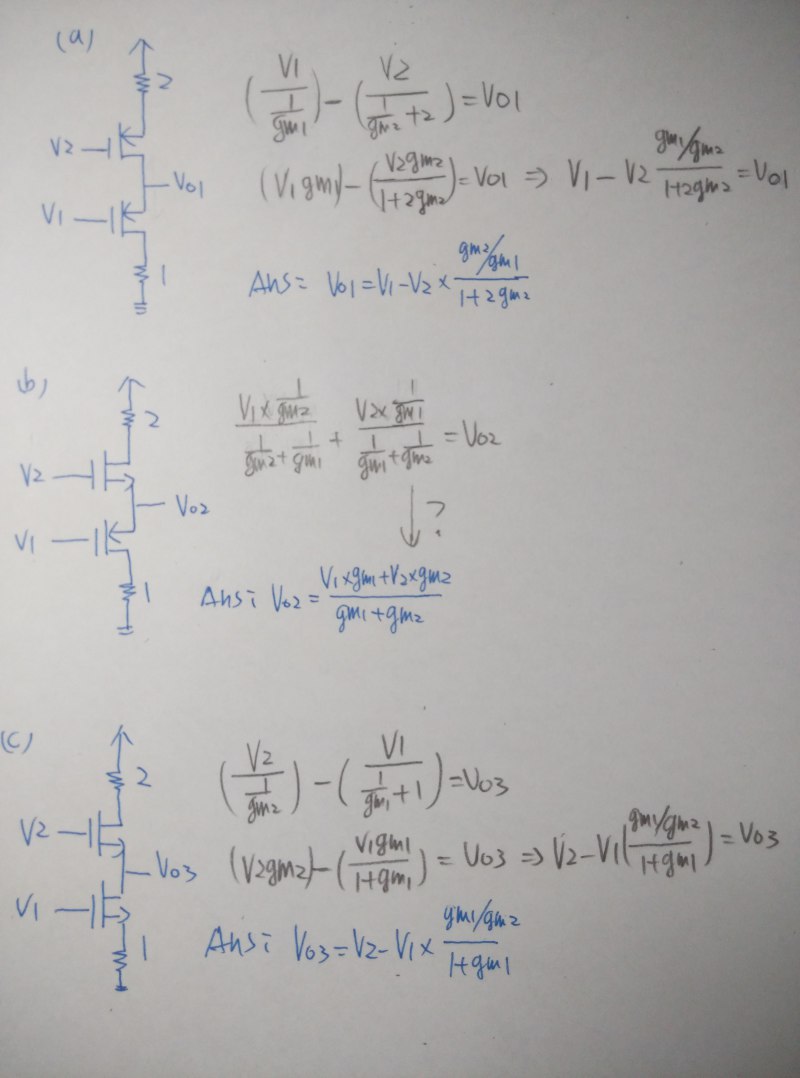 (a)
2
V2
V01
V1
1
(V1 / (1/gm1)) - (V2 / (1/gm2 + 2)) = V01
(V1 gm1) - (V2gm2 / (1+2gm2)) = V01 ⇒ V1 - V2 (gm1/gm2) / (1+2gm2) = V01
Ans: V01 = V1 - V2 × (gm2/gm1) / (1+2gm2)
b)
2
V2
V02
V1
1
(V1 × 1/gm2) / (1/gm2 + 1/gm1) + (V2 × 1/gm1) / (1/gm1 + 1/gm2) = V02
↓ ?
Ans: V02 = (V1×gm1+V2×gm2) / (gm1+gm2)
(c)
2
V2
V03
V1
1
(V2 / (1/gm2)) - (V1 / (1/gm1 + 1)) = V03
(V2gm2) - (V1gm1 / (1+gm1)) = V03 ⇒ V2 - V1 ((gm1/gm2) / (1+gm1)) = V03
Ans: V03 = V2 - V1 × (gm1/gm2) / (1+gm1)